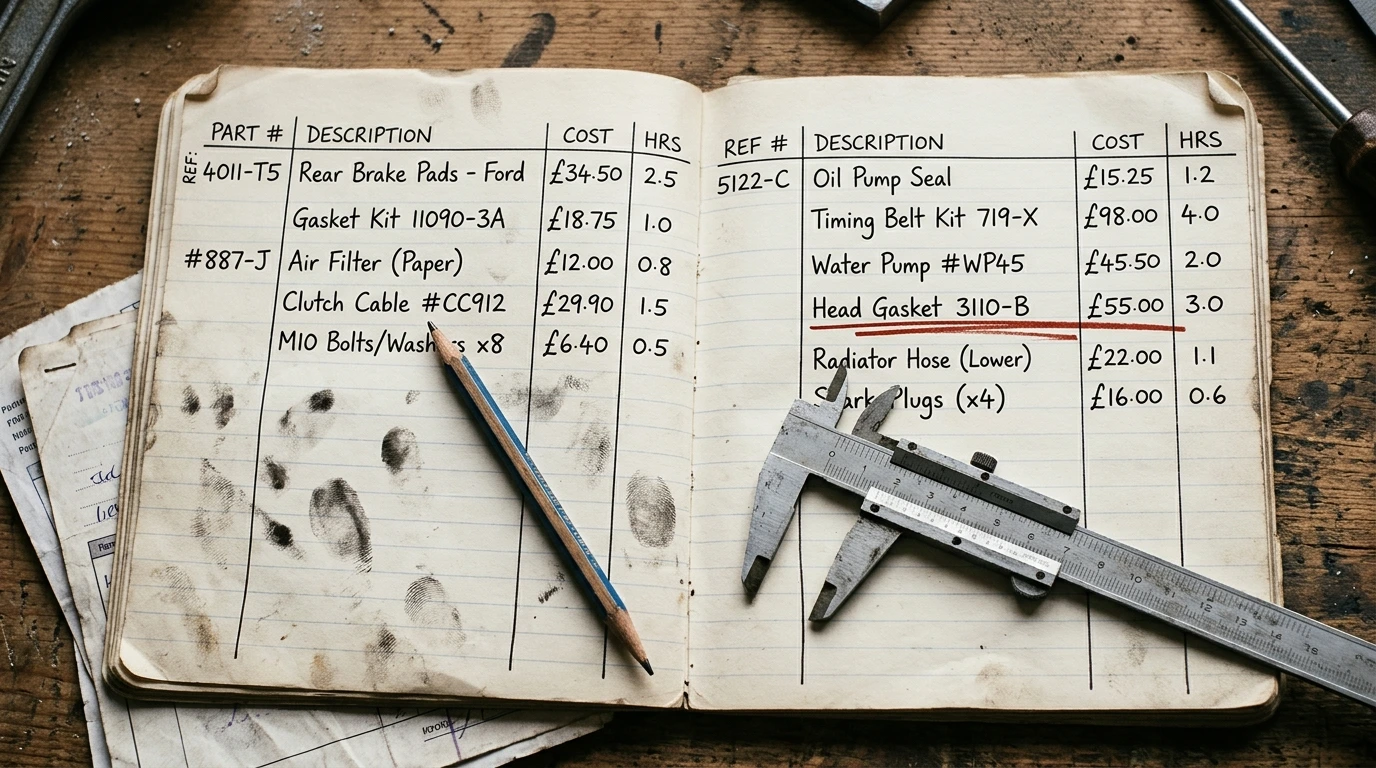 PART # DESCRIPTION COST HRS
REF: 4011-T5 Rear Brake Pads - Ford £34.50 2.5
Gasket Kit 11090-3A £18.75 1.0
#887-J Air Filter (Paper) £12.00 0.8
Clutch Cable #CC912 £29.90 1.5
M10 Bolts/Washers x8 £6.40 0.5
REF # DESCRIPTION COST HRS
5122-C Oil Pump Seal £15.25 1.2
Timing Belt Kit 719-X £98.00 4.0
Water Pump #WP45 £45.50 2.0
Head Gasket 3110-B £55.00 3.0
Radiator Hose (Lower) £22.00 1.1
Spark Plugs (x4) £16.00 0.6